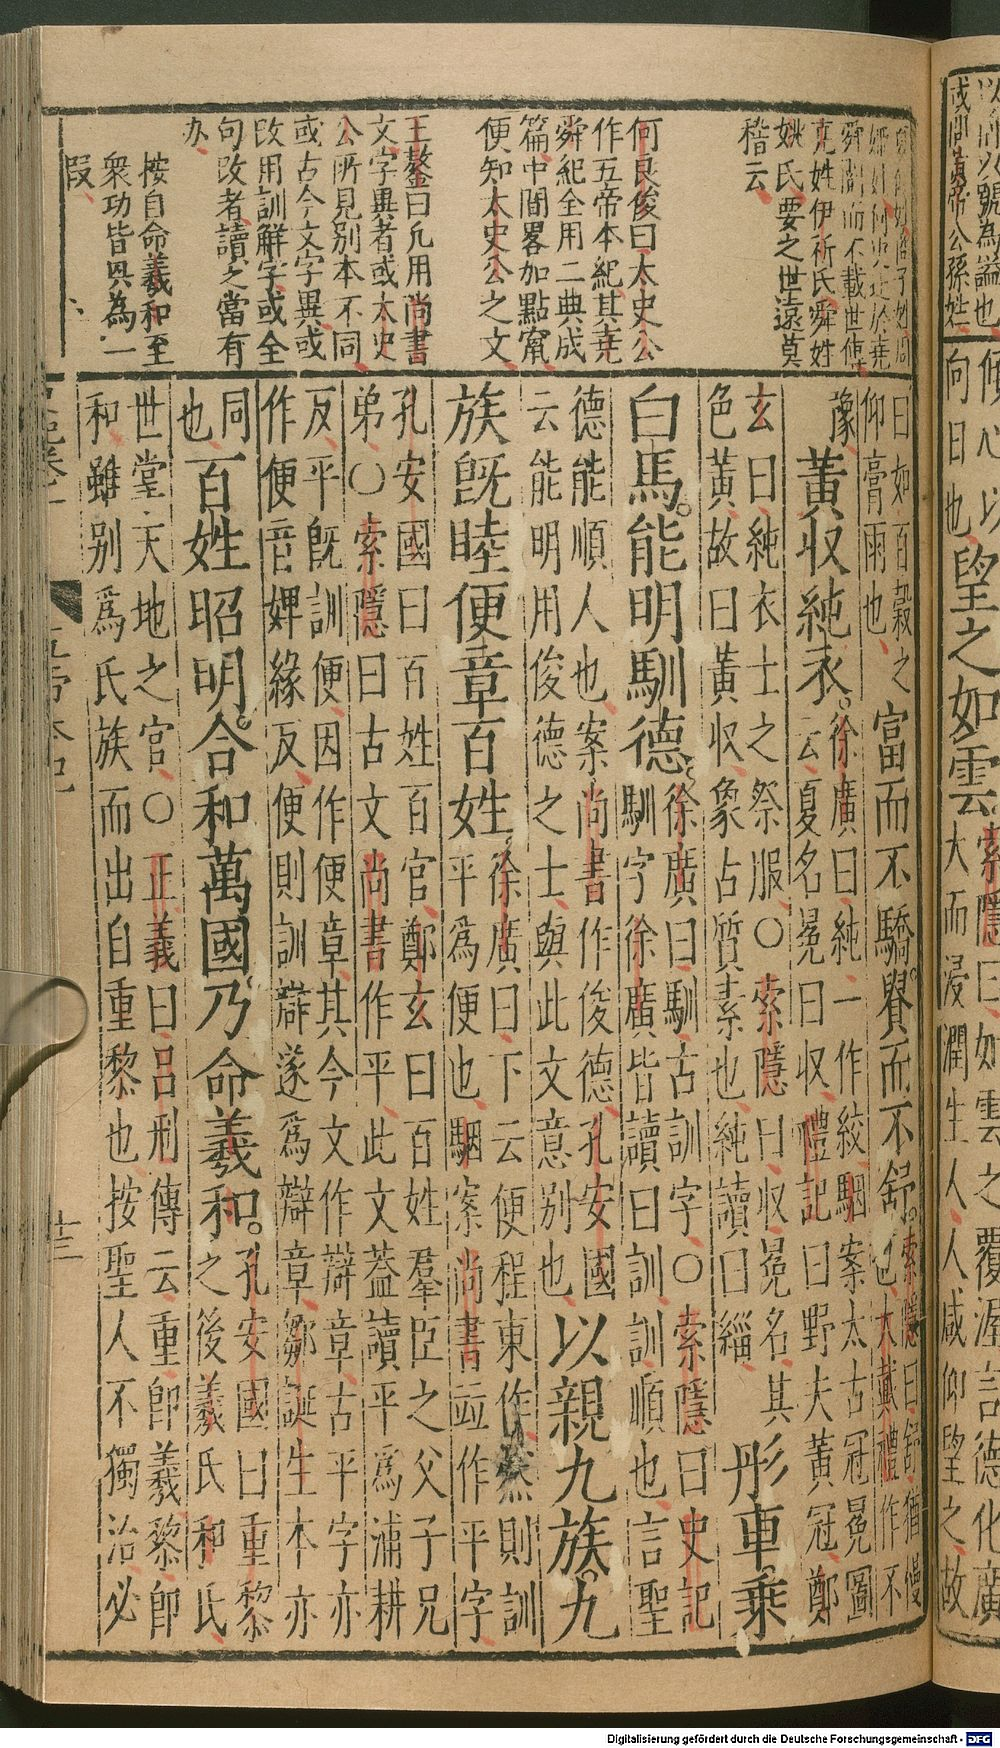 傾心以
向日也望之如雲
索隱曰如雲之覆渥言德化廣
大而浸潤生人人咸仰望之故
或謂黃帝公孫姓
舜
而不載世傳
堯姓伊祈氏舜姓
姚氏要之世遠莫
稽云
何良俊曰太史公
作五帝本紀其堯
舜紀全用二典成
篇中間畧加點竄
便知太史公之文
王鏊曰凡用尚書
文字異者或太史
公所見別本不同
或古今文字異或
改用訓解字或全
句改者讀之當有
办
按自命羲和至
衆功皆興為一
段
曰如百穀之
仰膏雨也
富而不驕貴而不舒
索隱曰舒猶慢
也大戴禮作不
豫
黃收純衣
徐廣曰純一作絞駰案太古冠冕圖
云夏名冕曰收禮記曰野夫黃冠鄭
玄曰純衣士之祭服○索隱曰收冕名其
色黃故曰黃收象古質素也純讀曰緇
彤車乘
白馬能明馴德
徐廣曰馴古訓字○索隱曰史記
馴字徐廣皆讀曰訓訓順也言聖
德能順人也案尚書作俊德孔安國
云能明用俊德之士與此文意別也
以親九族九
族既睦便章百姓
徐廣曰下云便程東作然則訓
平為便也駰案尚書並作平字
孔安國曰百姓百官鄭玄曰百姓羣臣之父子兄
弟○索隱曰古文尚書作平此文葢讀平爲浦耕
反平既訓便因作便章其今文作辯章古平字亦
作便音婢緣反便則訓辯遂爲辯章鄒誕生本亦
同
也
百姓昭明合和萬國乃命羲和
孔安國曰重黎
之後羲氏和氏
世掌天地之官○正義曰呂刑傳云重即羲黎即
和雖別爲氏族而出自重黎也按聖人不獨治必
史記卷一
五帝本紀
Digitalisierung gefördert durch die Deutsche Forschungsgemeinschaft - DFG